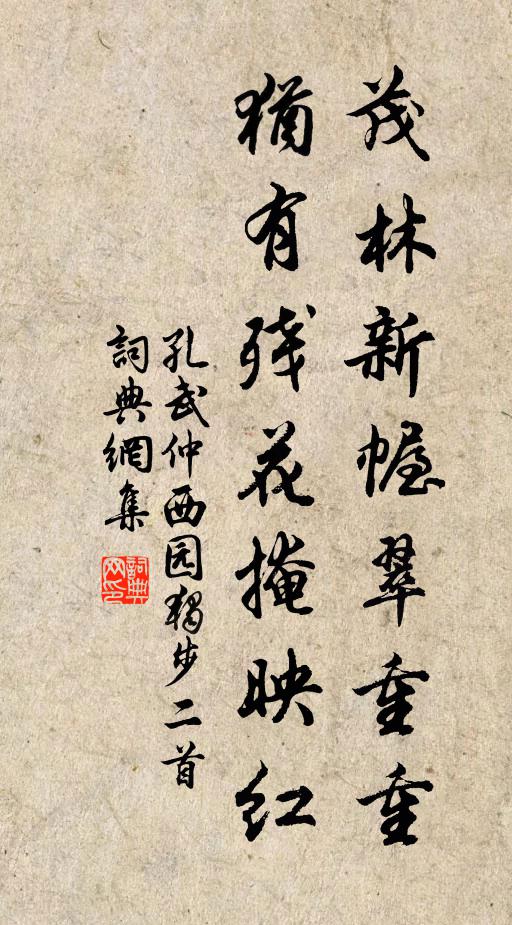 茂林新幄翠重重
猶有残花掩映紅
孔武仲西园獨步二首
詞典網集
詞典网印